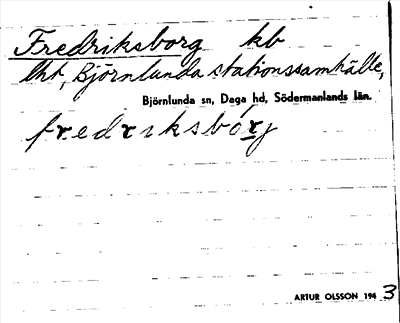 Fredriksborg kb
lht, Björnlunda stationssamhälle,
Björnlunda sn, Daga hd, Södermanlands län.
fredriksbórj
ARTUR OLSSON 1943